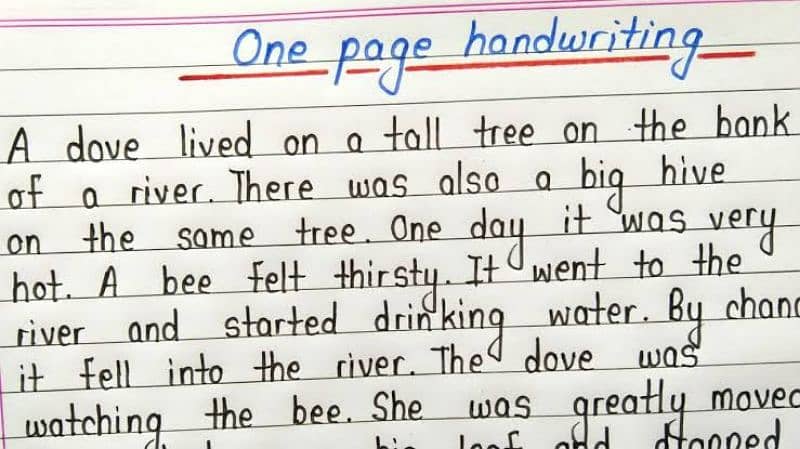 One page handwriting
A dove lived on a tall tree on the bank
of a river. There was also a big hive
on the same tree. One day it was very
hot. A bee felt thirsty. It went to the
river and started drinking water. By chanc
it fell into the river. The dove was
watching the bee. She was greatly moved
leaf and